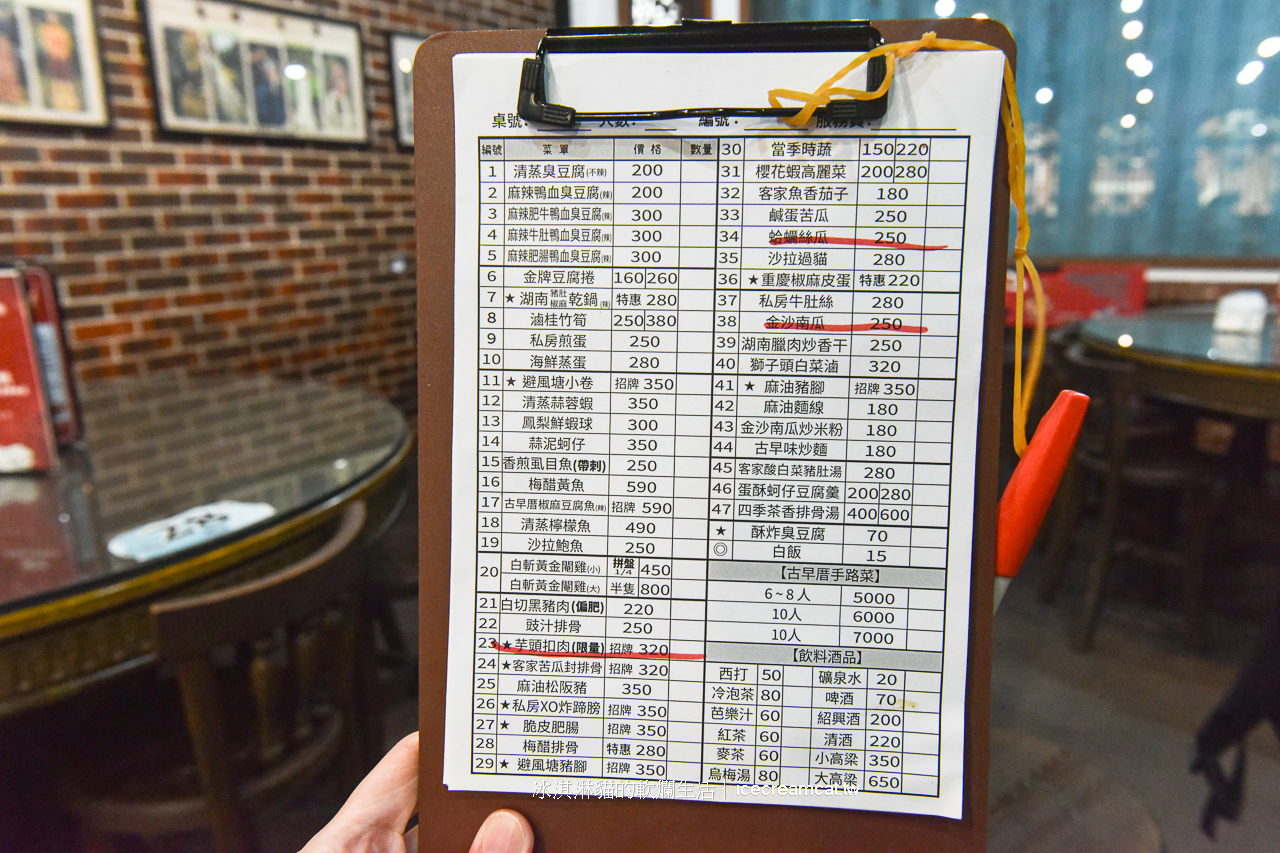 桌號: 人數: 編號: 服務費:
編號 菜單 價格 數量
1 清蒸臭豆腐(不辣) 200
2 麻辣鴨血臭豆腐(辣) 200
3 麻辣肥牛鴨血臭豆腐(辣) 300
4 麻辣牛肚鴨血臭豆腐(辣) 300
5 麻辣肥腸鴨血臭豆腐(辣) 300
6 金牌豆腐捲 160 260
7 ★湖南豬肚椒麻乾鍋(辣) 特惠 280
8 滷桂竹筍 250 380
9 私房煎蛋 250
10 海鮮蒸蛋 280
11 ★避風塘小卷 招牌 350
12 清蒸蒜蓉蝦 350
13 鳳梨鮮蝦球 300
14 蒜泥蚵仔 350
15 香煎虱目魚(帶刺) 250
16 梅醋黃魚 590
17 古早厝椒麻豆腐魚(辣) 招牌 590
18 清蒸檸檬魚 490
19 沙拉鮑魚 250
20 白斬黃金閹雞(小) 拼盤1/4 450
白斬黃金閹雞(大) 半隻 800
21 白切黑豬肉(偏肥) 220
22 豉汁排骨 250
23 ★芋頭扣肉(限量) 招牌 320
24 ★客家苦瓜封排骨 招牌 320
25 麻油松阪豬 350
26 ★私房XO炸蹄膀 招牌 350
27 ★脆皮肥腸 招牌 350
28 梅醋排骨 特惠 280
29 ★避風塘豬腳 招牌 350
30 當季時蔬 150 220
31 櫻花蝦高麗菜 200 280
32 客家魚香茄子 180
33 鹹蛋苦瓜 250
34 蛤蠣絲瓜 250
35 沙拉過貓 280
36 ★重慶椒麻皮蛋 特惠 220
37 私房牛肚絲 280
38 金沙南瓜 250
39 湖南臘肉炒香干 250
40 獅子頭白菜滷 320
41 ★麻油豬腳 招牌 350
42 麻油麵線 180
43 金沙南瓜炒米粉 180
44 古早味炒麵 180
45 客家酸白菜豬肚湯 280
46 蛋酥蚵仔豆腐羹 200 280
47 四季茶香排骨湯 400 600
★ 酥炸臭豆腐 70
◎ 白飯 15
【古早厝手路菜】
6~8人 5000
10人 6000
10人 7000
【飲料酒品】
西打 50 礦泉水 20
冷泡茶 80 啤酒 70
芭樂汁 60 紹興酒 200
紅茶 60 清酒 220
麥茶 60 小高粱 350
烏梅湯 80 大高粱 650
冰淇淋貓的軟爛生活|icecreamcat.tw